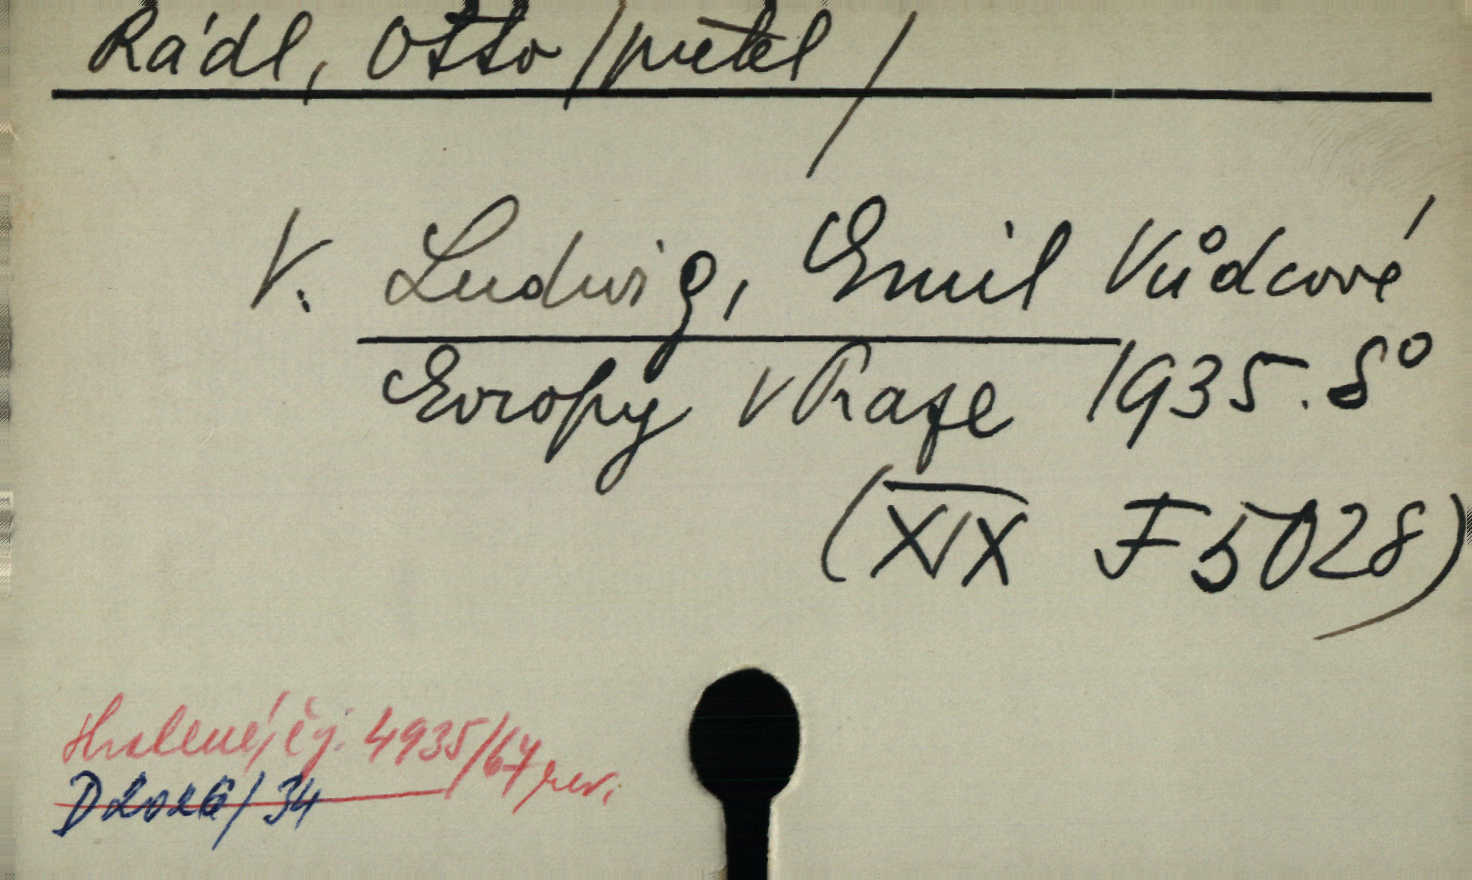 Rádl, Otto /přetel/
V. Ludwig, Emil Vůdcové
Evropy V Praze 1935. 8°
(XIX F 5028)
čj. 4935/67 rev.
D2026/34